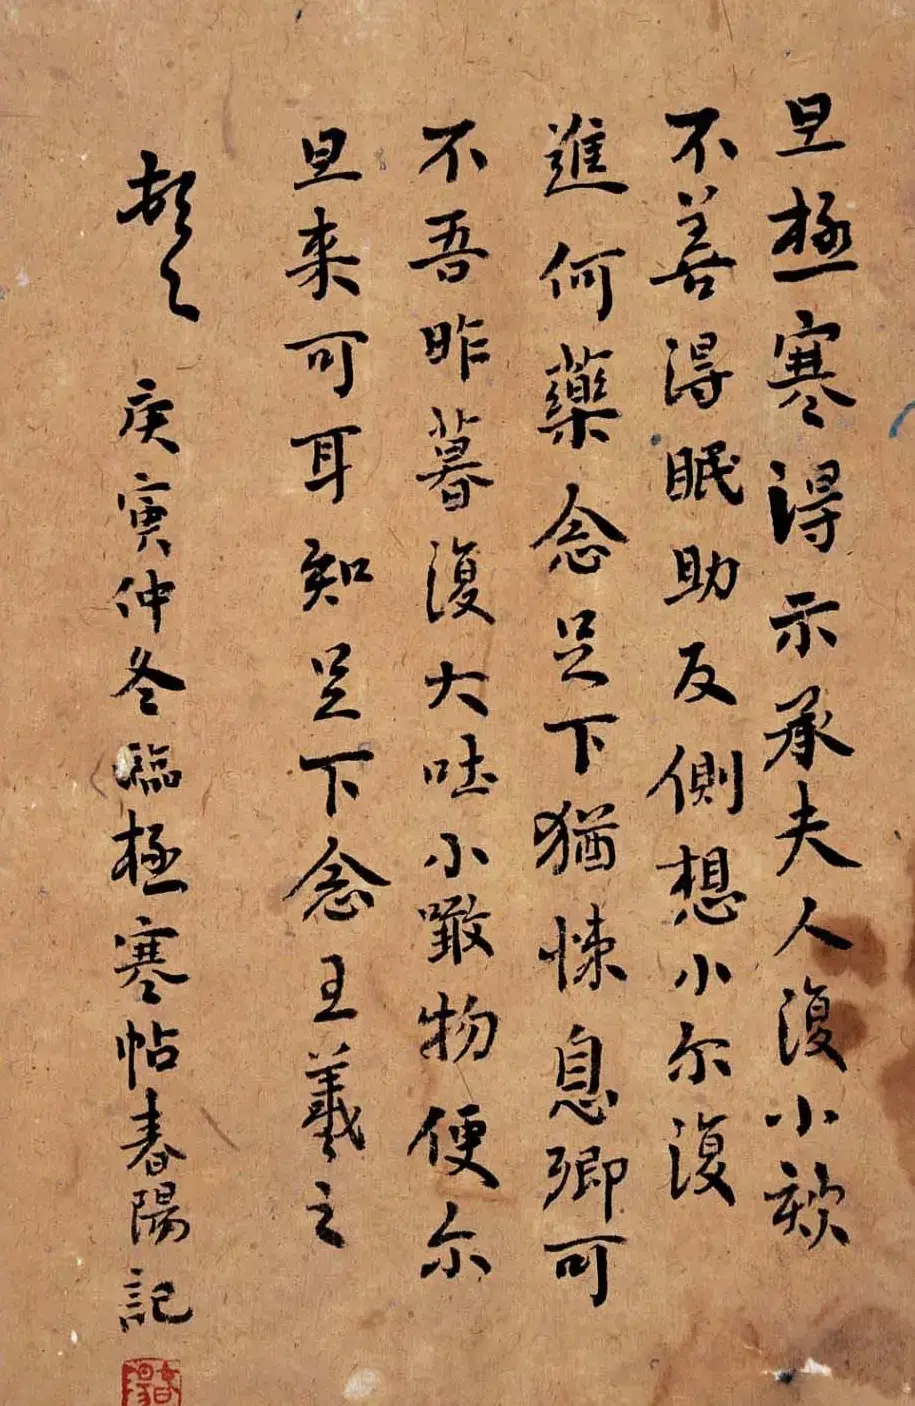 旦極寒得示承夫人復小欬
不善得眠助反側想小尔復
進何藥念足下猶悚息卿可
不吾昨暮復大吐小噉物便尔
旦来可耳知足下念王羲之
頓首 庚寅仲冬臨極寒帖春陽記
春陽